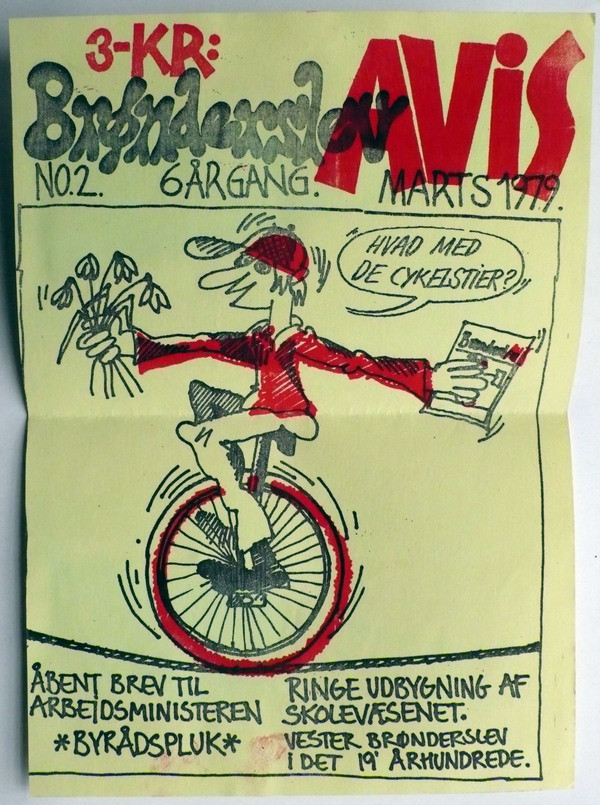 3-KR:
Brønderslev AVIS
NO.2. 6 ÅRGANG. MARTS 1979.
HVAD MED
DE CYKELSTIER?
Brønderslev
ÅBENT BREV TIL
ARBEJDSMINISTEREN
*BYRÅDSPLUK*
RINGE UDBYGNING AF
SKOLEVÆSENET.
VESTER BRØNDERSLEV
I DET 19' ÅRHUNDREDE.